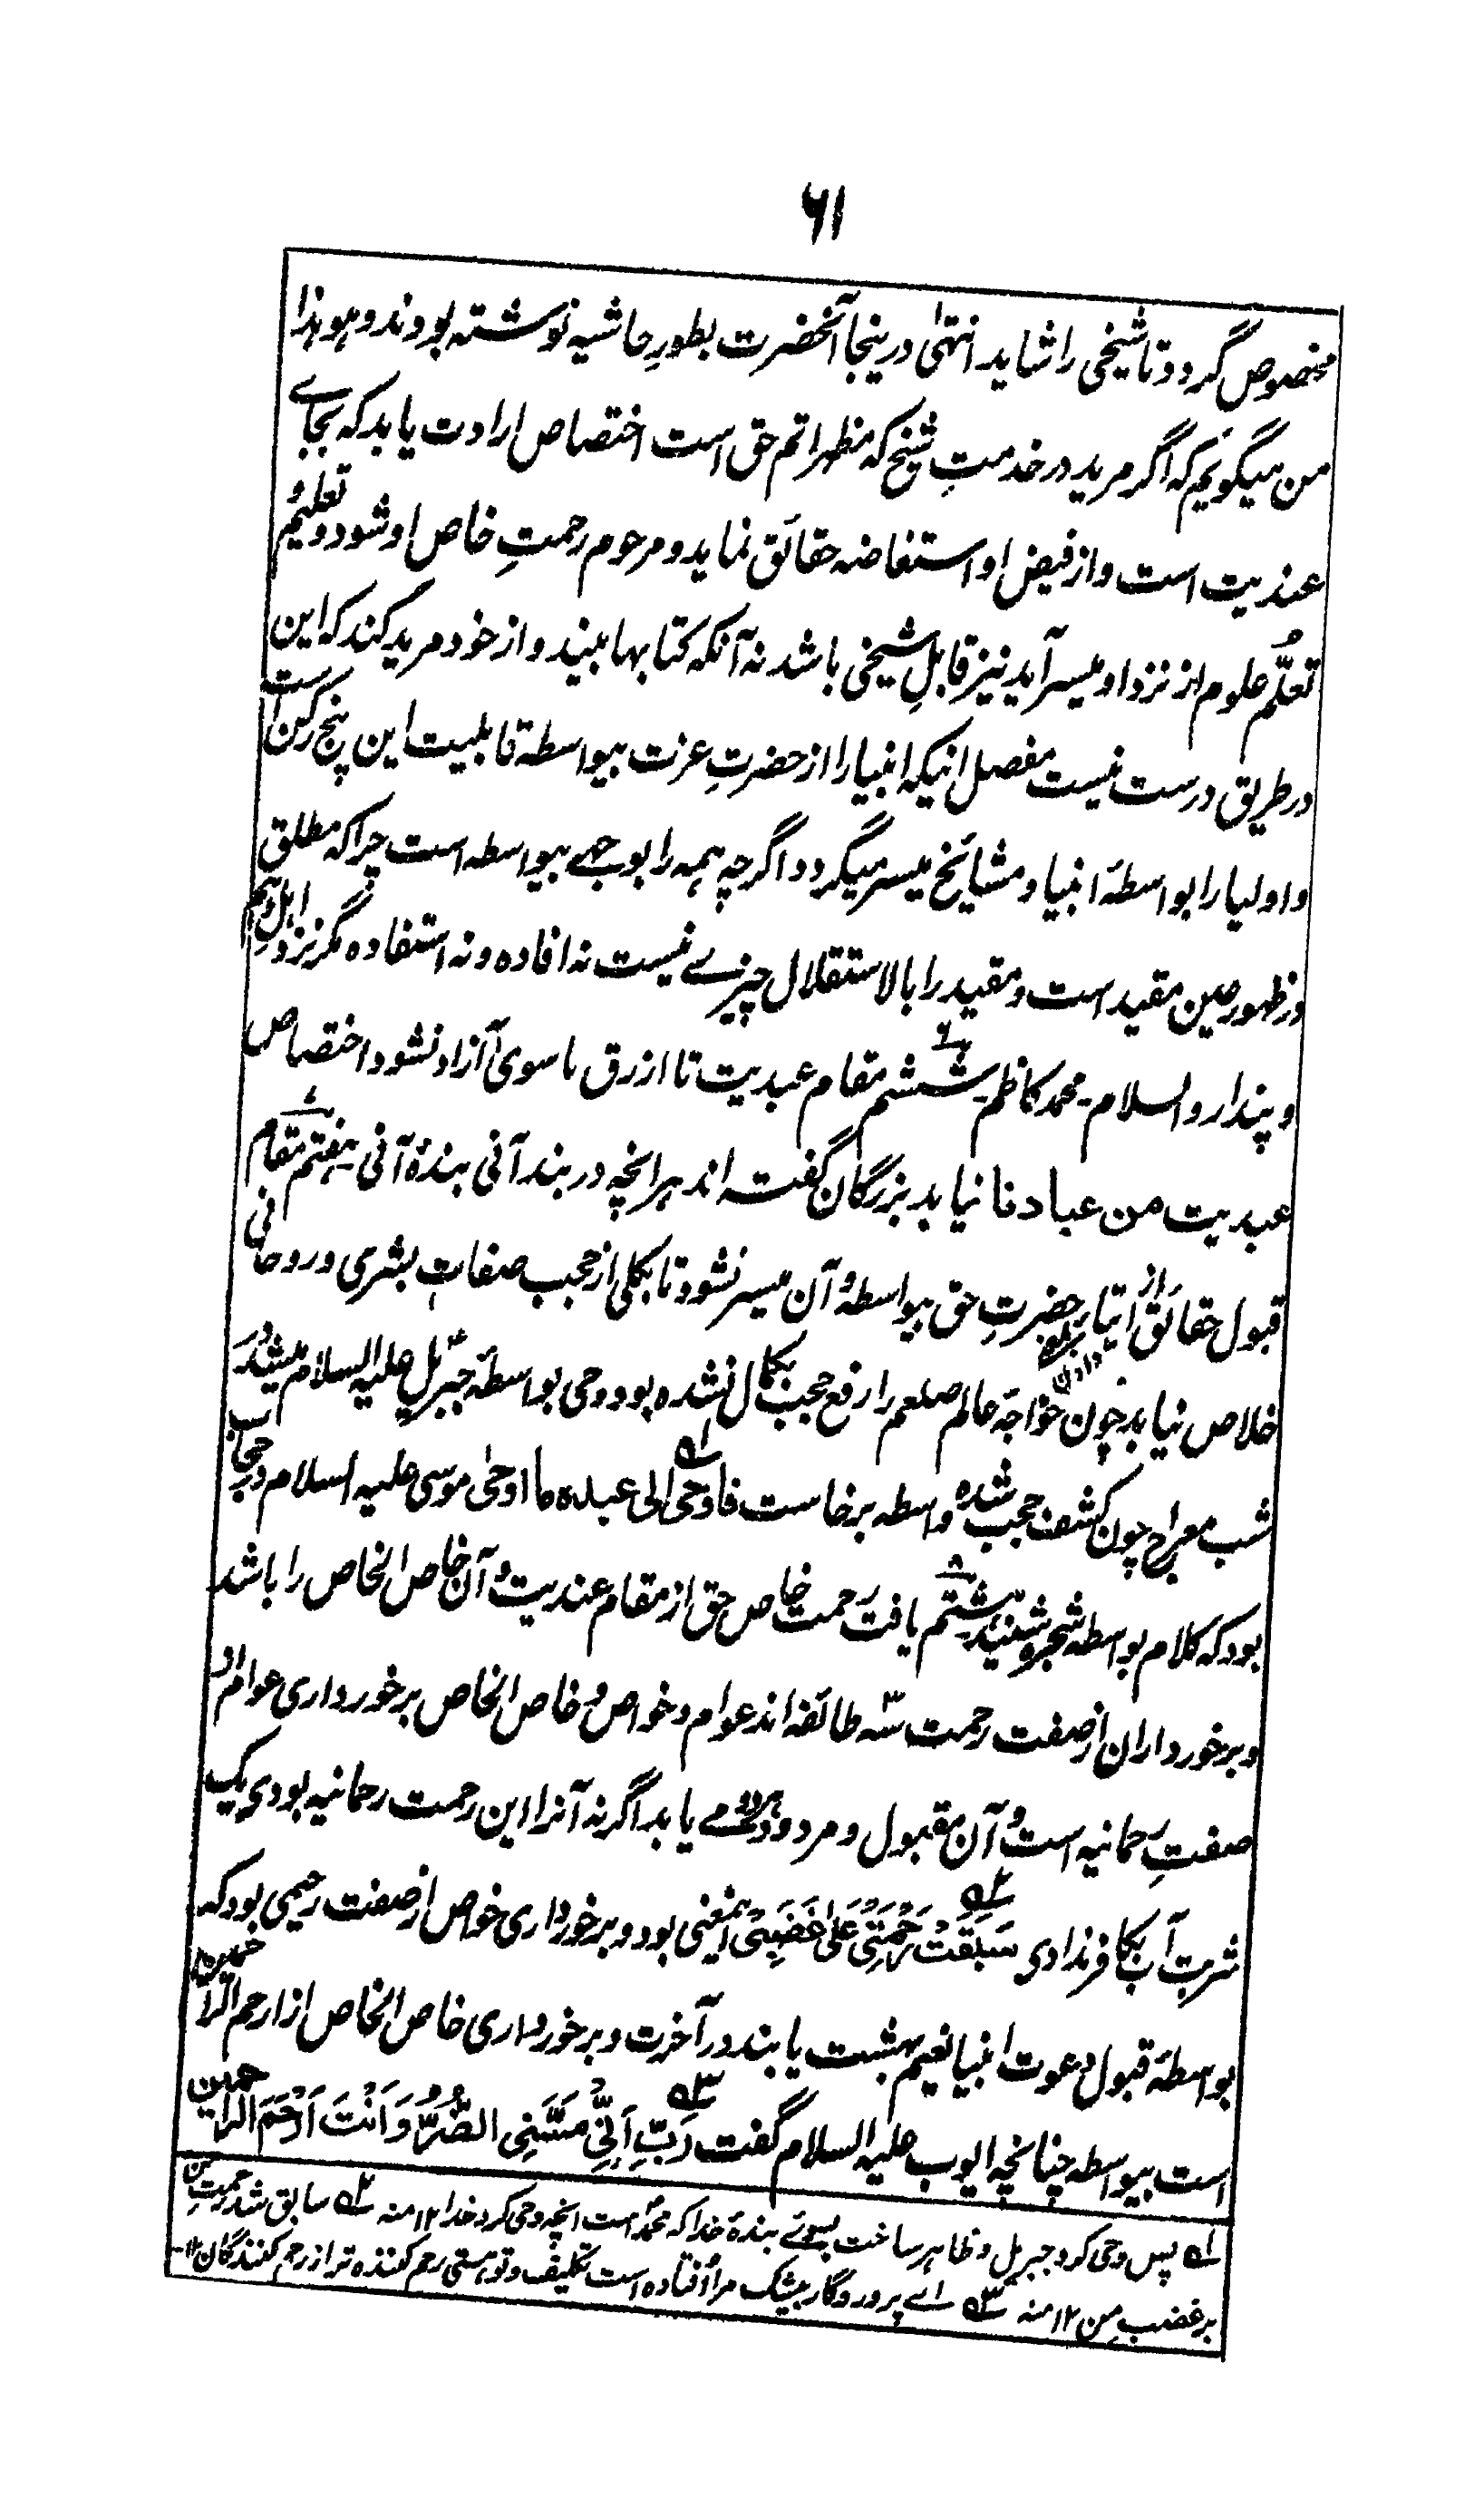 ۶۱
مخصوص گردد تا شیخی را شاید انتهیٰ درینجا آنحضرت بطورِ حاشیه نوشته بودند و هو هذا
من میگویم که اگر مرید در خدمتِ شیخ که مظهر اتم حق است اختصاص ارادت یابد که بجاے
عندیت است و از فیض او استفاضه حقائق نماید و مرحوم رحمتِ خاص او شود و تعلیم و
تعلّم علوم از نزد او میسر آید نیز قابلِ شیخی باشد نه آنکه کتابها بیند و از خود مرید کند که این
در طریق درست نیست مفصل اینکه انبیا را از حضرتِ عزت بیواسطه قابلیت این پنج رکن است
و اولیا را بواسطۂ انبیا و مشائخ میسر میگردد اگرچه همه را بوجهے بیواسطه است چراکه مطلق
در ظهور عین مقید است و مقید را بالاستقلال چیزے نیست نه افاده و نه استفاده مگر نزد اهلِ وهم
و پندار والسلام ۔ محمد کاظم ۔ ششم مقام عبدیت تا از رق ما سوی آزاد نشود اختصاص
عبدیت من عبادنا نیابد بزرگان گفته اند هرانچه در بند آنی بندۂ آنی ۔ هفتم مقام
قبول حقائق از ایتاء حضرتِ حق بیواسطۂ و آن میسر نشود تا بکلی از حجب صفاتِ بشری و روحانی
خلاص نیابد چون خواجۂ عالم صلعم را رفع حجب بکمال نشده بود وحی بواسطۂ جبرئیل علیه السلام میشد و
شب معراج چون کشف حجب شده واسطه برخاست فاوحیٰ الی عبده ما اوحیٰ موسی علیه السلام در حجاب
بود که کلام بواسطه شجره شنید ۔ هشتم یافت رحمت خاص حق از مقام عندیت و آن خاص الخاص را باشد
و برخورداران از صفت رحمت سه طائفه اند عوام و خواص و خاص الخاص برخورداری عوام از
صفتِ رحمانیه است و آن مقبول و مردود هر دو مے یابد اگر نه آنرا این رحمت رحمانیه بودی یک
شربت آب بکافر ندادی سَبَقَتْ رَحْمَتِیْ عَلیٰ غَضَبِیْ اینمعنی بود و برخورداری خواص از صفت رحیمی بود که
بواسطۂ قبول دعوت انبیا نعیم بهشت یابند در آخرت و برخورداری خاص الخاص از ارحم الراحمین
است بیواسطه چنانچه ایوب علیه السلام گفت رَبِّ اَنِّیْ مَسَّنِیَ الضُّرُّ وَاَنْتَ اَرْحَمُ الرَّاحِمِین
۱ه پس وحی کرد جبریل و ظاهر ساخت بسوے بندۂ خدا که محمد است انچه وحی کرد خدا ۱۲ منه ۲ه سابق شد رحمتِ من
بر غضبِ من ۱۲ منه ۳ه اے پروردگار بیشک مرا افتاده است تکلیف و تو هستی رحم کننده تر از رحم کنندگان ۱۲